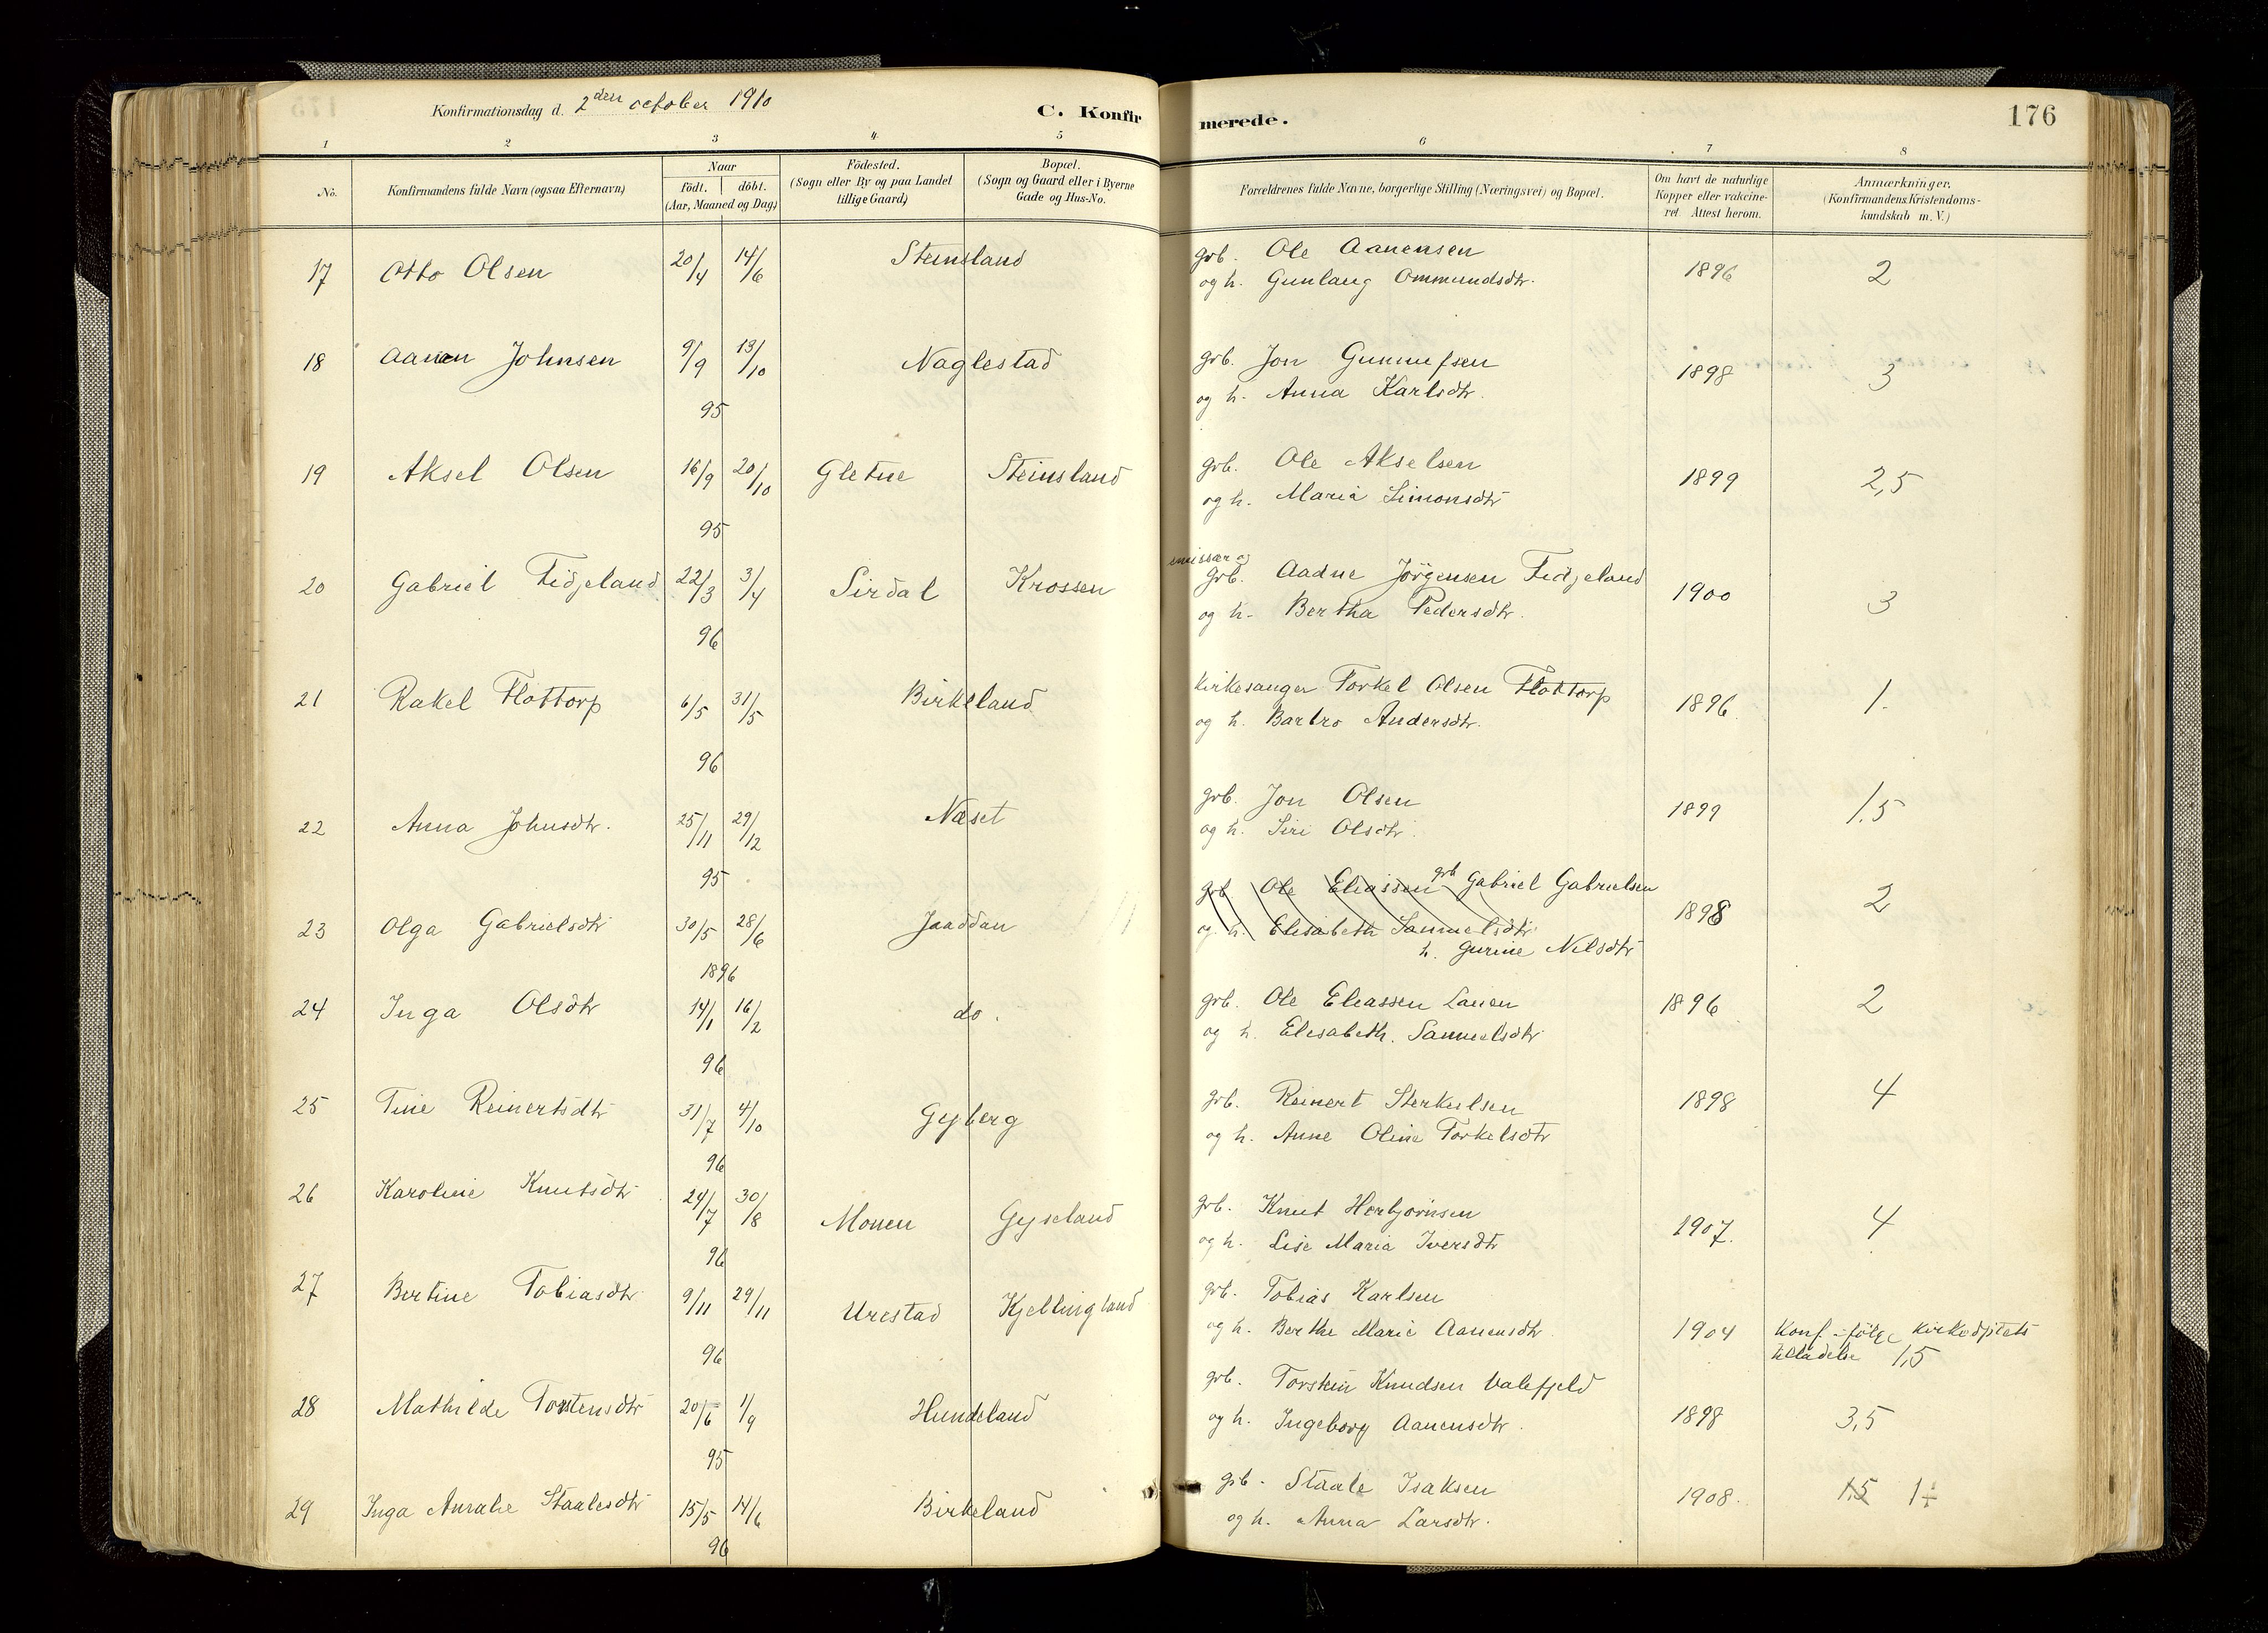 Konfirmationsdag d. 2den october 1910
C. Konfirmerede.
176
1 2 3 4 5 6 7 8
No.
Konfirmandens fulde Navn (ogsaa Efternavn)
Naar
födt. döbt.
(Aar, Maaned og Dag)
Födested.
(Sogn eller By og paa Landet
tillige Gaard)
Bopæl.
(Sogn og Gaard eller i Byerne
Gade og Hus-No.
Forældrenes fulde Navne, borgerlige Stilling (Næringsvei) og Bopæl.
Om havt de naturlige
Kopper eller vakcine-
ret. Attest herom.
Anmærkninger.
(Konfirmandens Kristendoms-
kundskab m. V.)
17 Otto Olsen 20/4 14/6 Steinsland grb. Ole Aanensen 1896 2
og h. Gunlaug Ommundsdtr.
18 Aanen Johnsen 9/9 13/10 Naglestad grb. Jon Gunnufsen 1898 3
95 og h. Anna Karlsdtr.
19 Aksel Olsen 16/9 20/10 Gletne Steinsland grb. Ole Akselsen 1899 2,5
95 og h. Maria Simonsdtr
20 Gabriel Fidjeland 22/3 3/4 Sirdal Krossen emissær og
grb. Aadne Jörgensen Fidjeland 1900 3
96 og h. Bertha Pedersdtr.
21 Rakel Flottorp 6/5 31/5 Birkeland kirkesanger Torkel Olsen Flottorp 1896. 1.
96 og h. Barbro Andersdtr.
22 Anna Johnsdtr. 25/11 29/12 Næset grb. Jon Olsen 1899 1.5
95 og h. Siri Olsdtr.
23 Olga Gabrielsdtr 30/5 28/6 Jaaddan grb Ole Eliassen grb Gabriel Gabrielsen 1898 2
1896 og h. Elisabeth Samuelsdtr
h. Gurine Nilsdtr
24 Inga Olsdtr 14/1 16/2 do. grb. Ole Eliassen Lauen 1896 2
96 og h. Elisabeth. Samuelsdtr
25 Tine Reinertsdtr 31/7 4/10 Gyberg grb. Reinert Sterkulsen 1898 4
96 og h. Anne Oline Torkelsdtr
26 Karoline Knutsdtr 24/7 30/8 Monen Gyseland grb. Knut Herbjørnsen 1907. 4
96 og h. Lise Maria Iversdtr
27 Bertine Tobiasdtr 9/11 29/11 Urestad Kjellingland grb. Tobias Karlsen
96 og h. Berthe Marie Aanensdtr. 1904 Konf. ifölge kirkedptets
tilladelse 1,5
28 Mathilde Torstensdtr 20/6 1/9 Hundeland grb. Torstein Knudsen Valefjeld 1898 3,5
95 og h. Ingeborg Aanensdtr.
29 Inga Amalie Staalesdtr 15/5 14/6 Birkeland grb. Staale Isaksen 1908. 1.5 1+
96 og h. Anna Larsdtr.